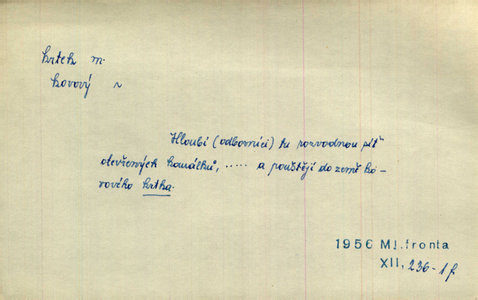 krtek m.
kovový ~
Hloubí (odborníci) tu rozvodnou síť
otevřených kanálků, ..... a pouštějí do země ko-
vového krtka.
1956 Ml.fronta
XII, 236-1